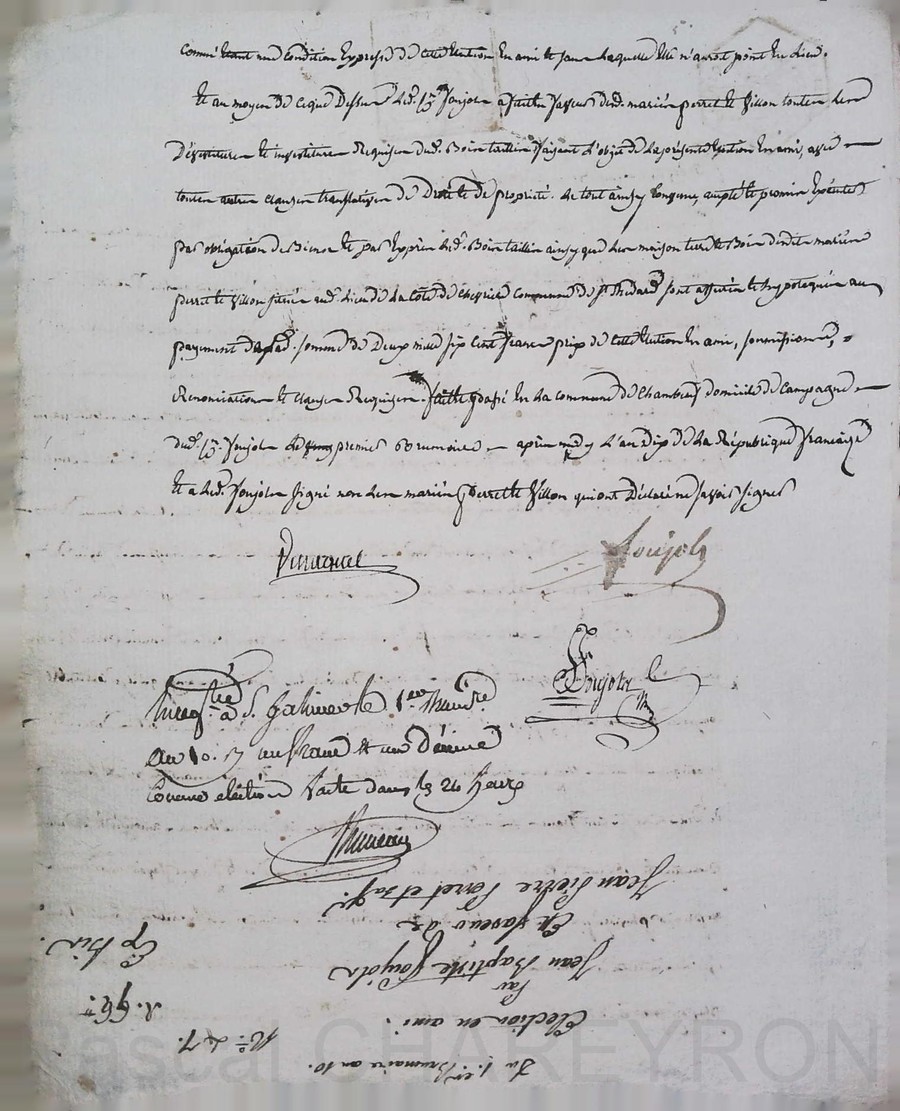 comme étant une condition Expresse de cette Election en ami et sans laquelle Elle n'auroit point Eu Lieu.
Et au moyen de ceque Dessus led. Cn. Foujols en faveur desd. mariés perret et Villon toutes Les
Dévestitures et investitures Requises du. Bois taillis faisant L'objet de La présente Election En ami, avec
toutes autres clauses translatives de Droit et de propriété. Le tout ainsy Convenu, accepté et promis Exécuter
par obligation de Biens et par Exprès led. Bois taillis ainsy que Les maison terre et Bois desdits mariés
perret et Villon situés aud. Lieu de La Côte de commune de St. Médard sont affectés et hypotequés au
payement de lad. somme de Deux mille six Cent francs prix de cette Election En ami, soumissions,
Renonciations et clauses Requises. fait et passé En La commune de Chambœuf domicile de Campagne
dud. Cn. Foujols Le premier Brumaire après midy L'an Dix de La République française
Et a led. Foujols signé non Les mariés perret et Villon qui ont Déclaré ne savoir signer
Foujols
Foujols
Enregtré à S. Galmier le 1er Brumre
an 10. un franc et un Décime
Comme election faite dans les 24 heures
Jean Pierre Perret et sa fe.
En faveur de
Jean Baptiste Foujols
Par
Election en ami.
No. 47.
Du 1.er Brumaire an 10.
Pascal CHAREYRON